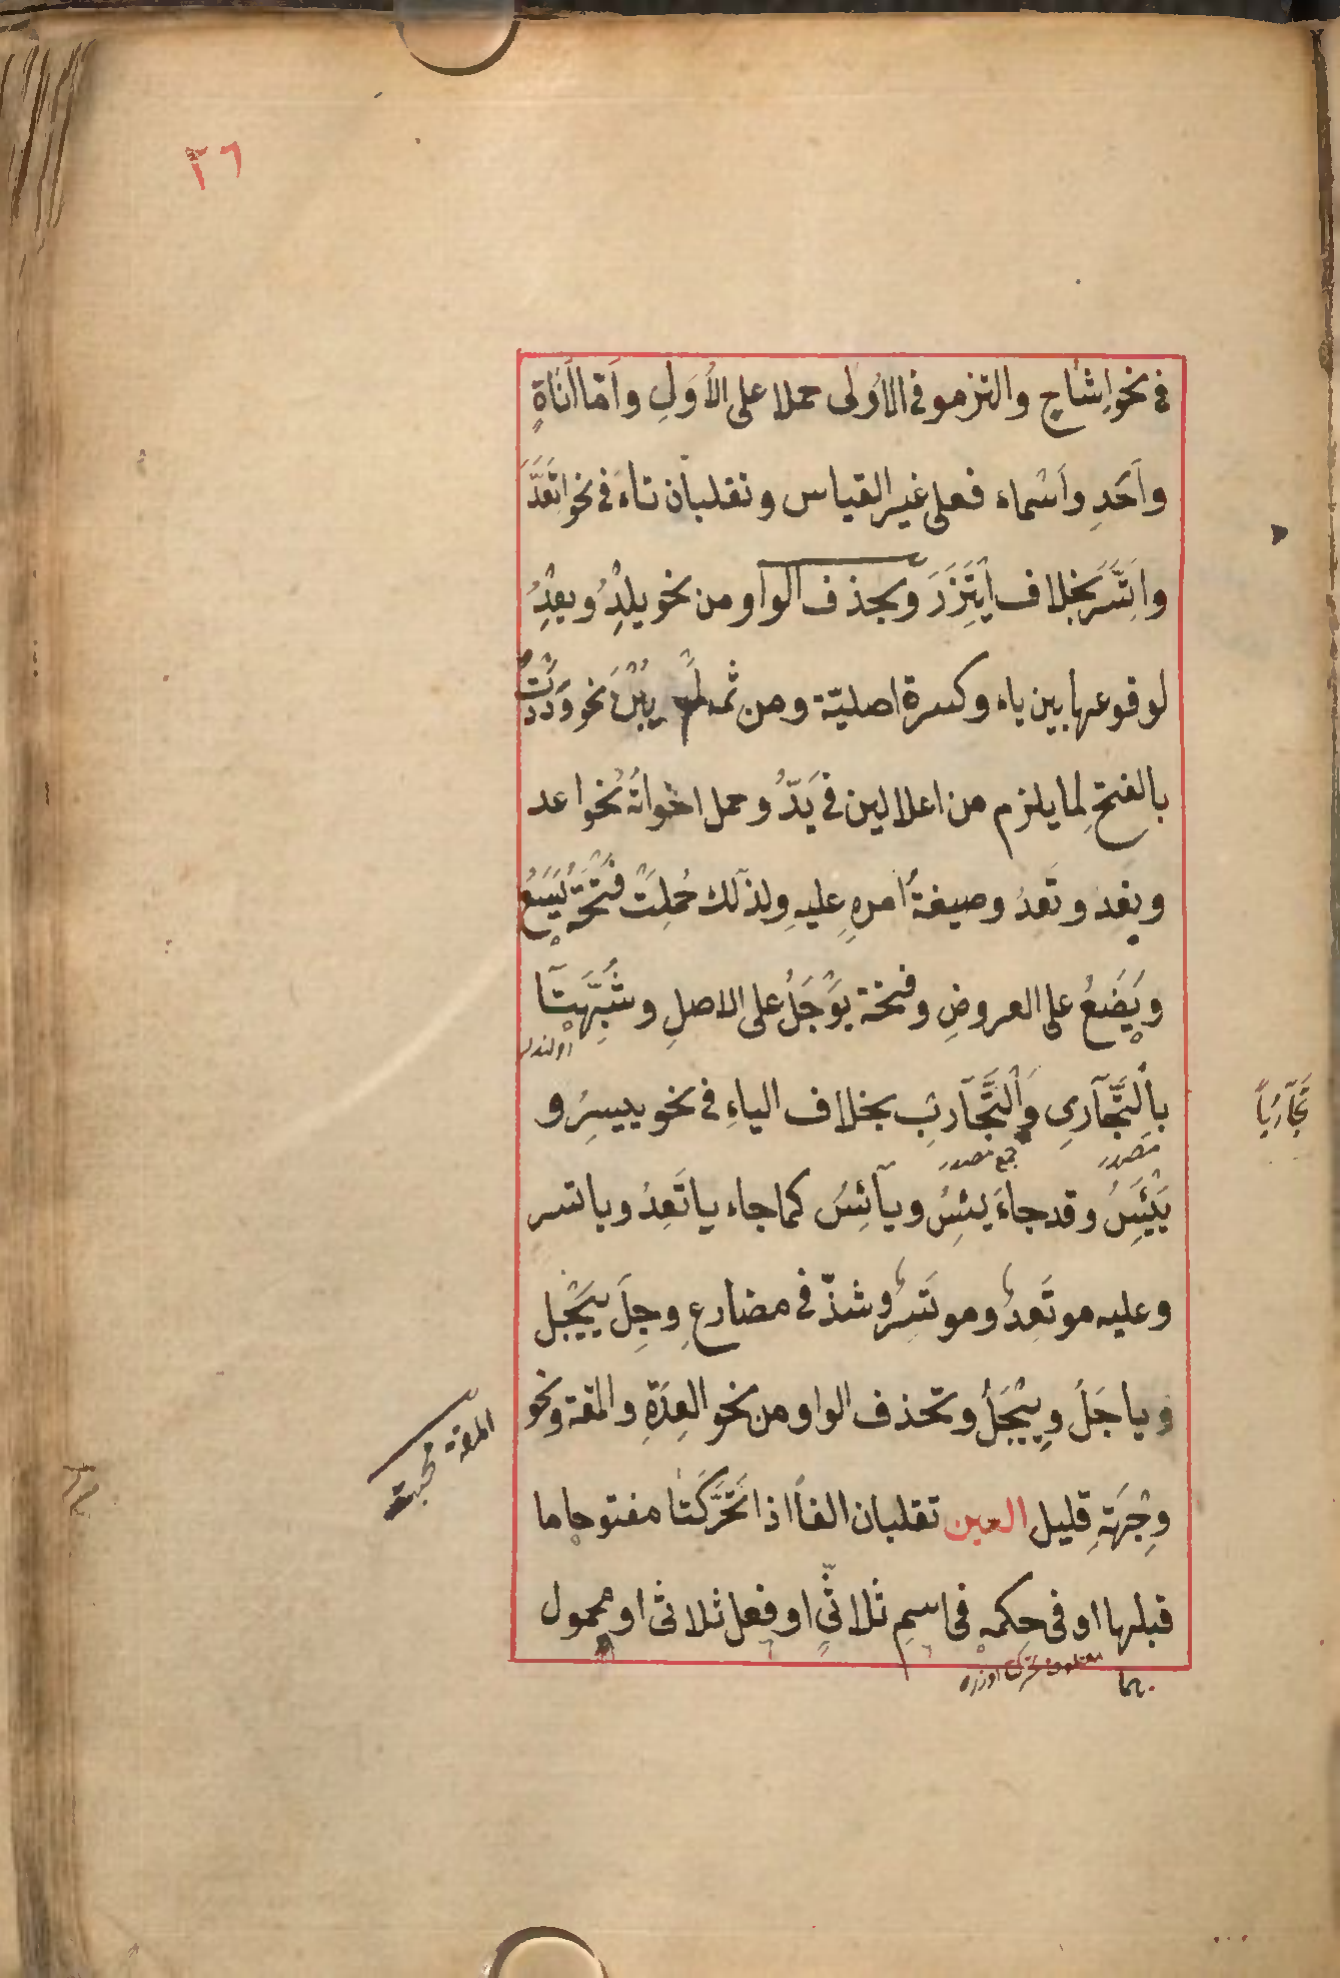 ٢٦
في نحو اِشَاحٍ والتزمو في الاُولى حملا على الاُوَلِ واَمّا اَنَاةٍ
واَحَدٍ واَسْماء فعلى غير القياس وتقلبان تاء في نحو اتَّعَدَ
واتَّسَرَ بخلاف ايْتَزَرَ وتحذف الواو من نحو يلِدُ ويعِدُ
لوقوعها بين ياء وكسرة اصليّة ومن ثمه لم يُبْنَ نحو وَدَدْتُ
بالفتحِ لما يلزم من اعلالين في يَدُّ وحمل اخواتُهُ نحو اعد
ونعد وتَعِدُ وصيغةُ امرهِ عليهِ ولذلك حُمِلَتْ فَتْحَةُ يَسَعُ
ويَضَعُ على العروضِ وفتحة يَوْجَلُ على الاصلِ وشُبِّهَتَا
اولندلر
بالتَّجَارِي والتَّجَارِبِ بخلاف الياءِ في نحو ييسِرُ و
تَجَارُباً
مصدر
جمع مصدر
يَيْئِسُ وقد جاءَ يئِسُ ويآئِسُ كما جاء ياتَعِدُ وياتسر
وعليه موتَعِدٌ وموتَسِرٌ وشذّ في مضارعِ وجِلَ ييْجَل
وياجَلُ ويِيْجَلُ وتحذف الواو من نحو العِدَةِ والمقة ونحو
المقة محبت
وِجْهَةٍ قليل العين تقلبان الفاً اذا تَحَرَّكَتا مفتوحا ما
قبلها او في حكمه في اسمٍ ثلاثيٍّ او فعل ثلاثى او محمول